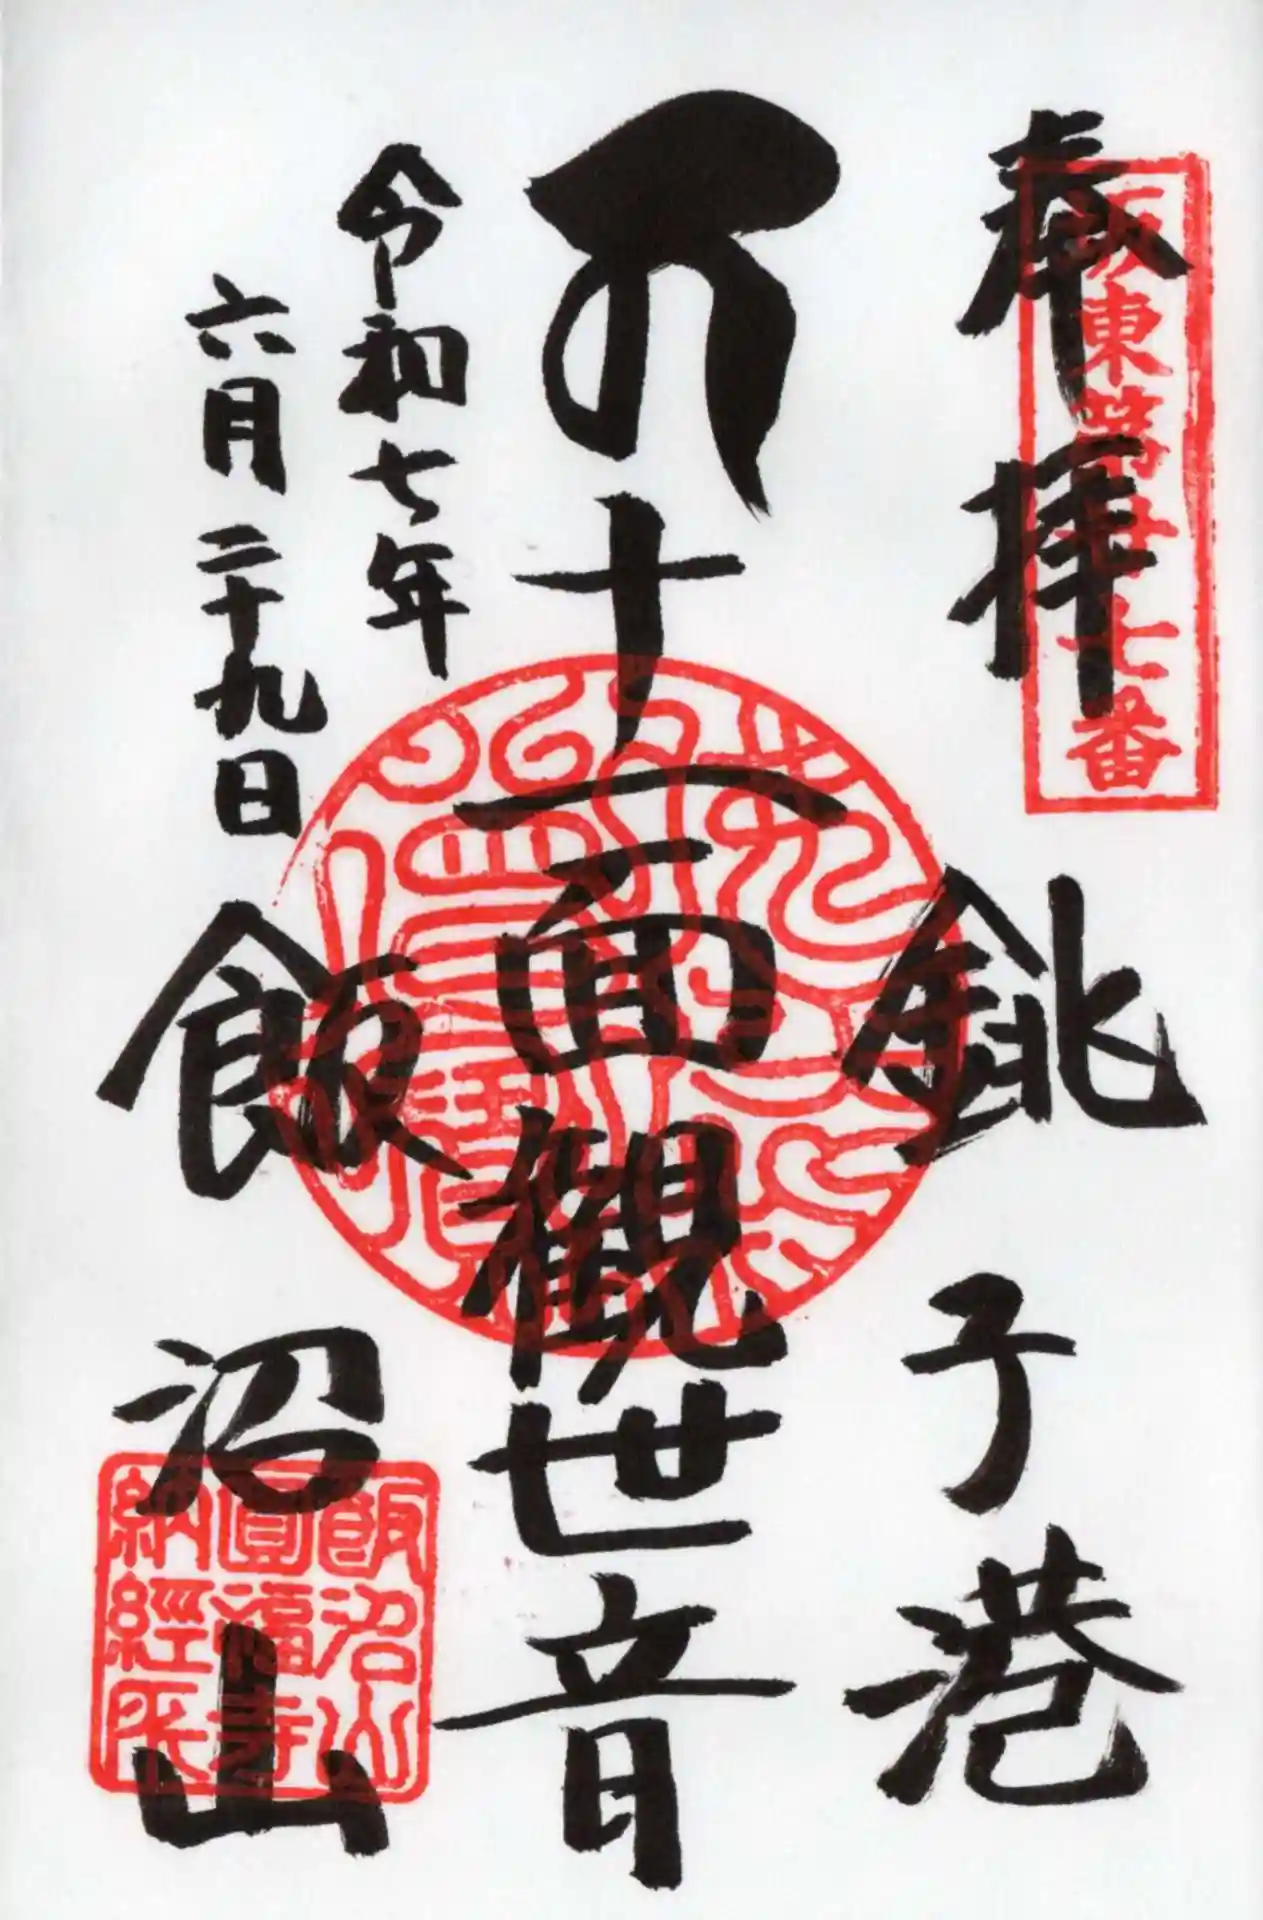 奉拝
坂東第廿七番
銚子港
十一面觀世音
令和七年
六月二十九日
飯沼山
飯沼山
圓福寺
納經所